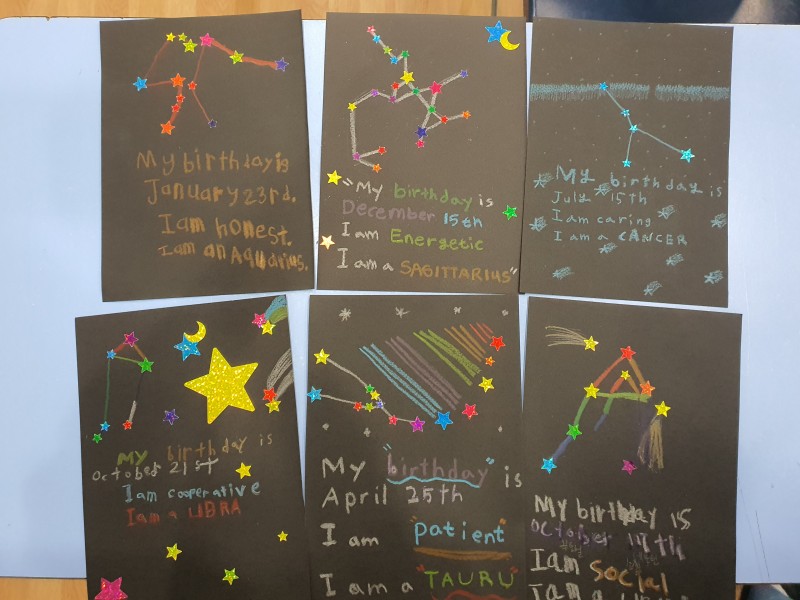 My birthday is
January 23rd.
I am honest.
I am an Aquarius.
"My birthday is
December 15th
I am Energetic
I am a SAGITTARIUS"
My birthday is
July 15th
I am caring
I am a CANCER
MY birthday is
October 21st
I am cooperative
I am a LIBRA
My "birthday" is
April 25th
I am "patient"
I am a "TAURU"
My birthday is
October 17th
I am social
I am a